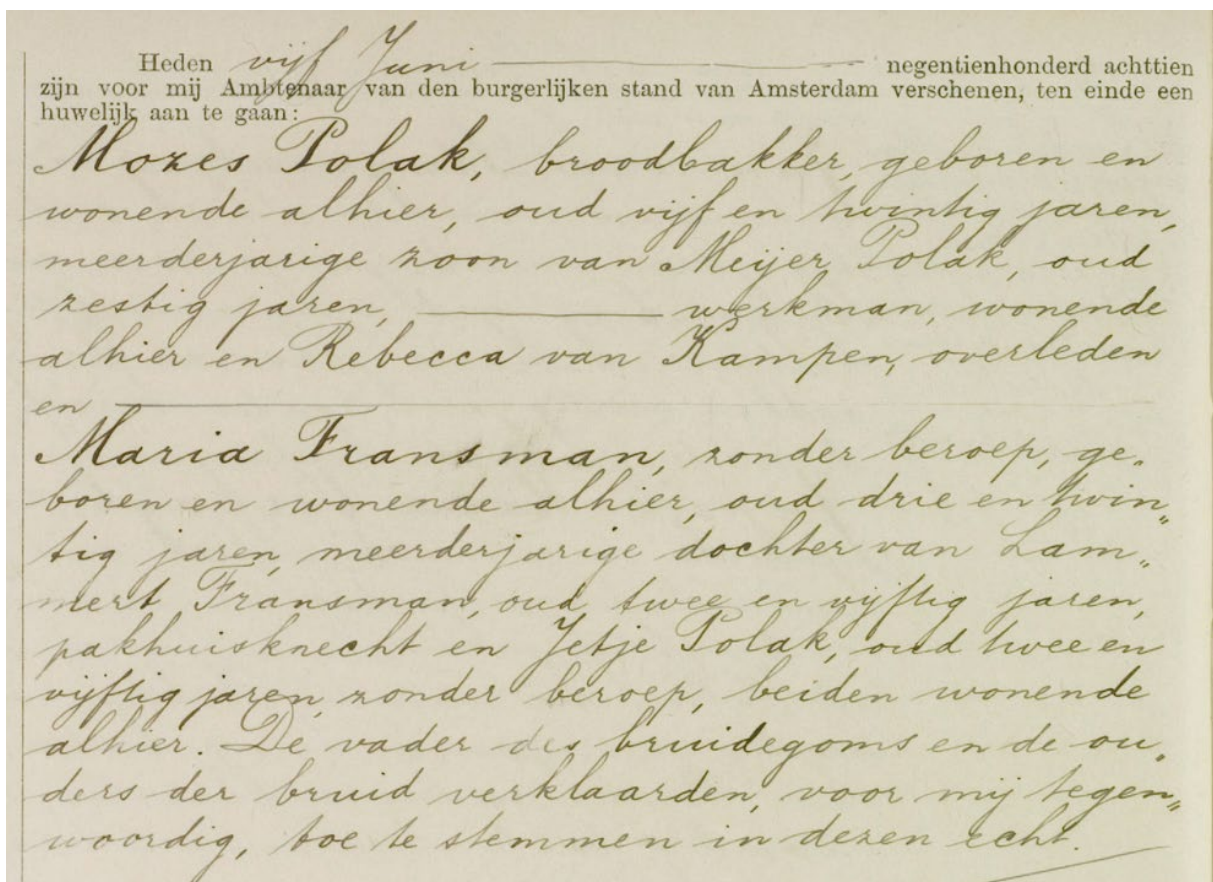 Heden vijf Juni negentienhonderd achttien
zijn voor mij Ambtenaar van den burgerlijken stand van Amsterdam verschenen, ten einde een
huwelijk aan te gaan:
Mozes Polak, broodbakker, geboren en
wonende alhier, oud vijf en twintig jaren,
meerderjarige zoon van Meijer Polak, oud
zestig jaren, werkman, wonende
alhier en Rebecca van Kampen, overleden
en
Maria Fransman, zonder beroep, ge„
boren en wonende alhier, oud drie en twin„
tig jaren, meerderjarige dochter van Lam„
mert Fransman, oud twee en vijftig jaren,
pakhuisknecht en Jetje Polak, oud twee en
vijftig jaren, zonder beroep, beiden wonende
alhier. De vader des bruidegoms en de ou„
ders der bruid verklaarden, voor mij tegen„
woordig, toe te stemmen in dezen echt.